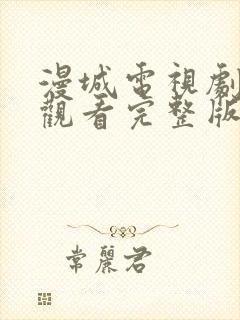 漫城電視劇
觀看完整版
常麗君